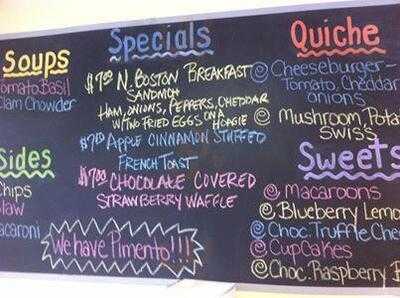 Soups
Tomato Basil
Clam Chowder
Sides
Chips
Slaw
Macaroni
Specials
$7.00 N. Boston Breakfast
Sandwich
Ham, Onions, Peppers, Cheddar
w/Two Fried Eggs on a
Hoagie
Apple Cinnamon Stuffed
French Toast
$7.00 Chocolate Covered
Strawberry Waffle
We have Pimento!!!
Quiche
@ Cheeseburger-
Tomato, Cheddar
onions
@ Mushroom, Potat
swiss
Sweets
@ Macaroons
@ Blueberry Lemo
@ Choc. Truffle Chee
@ CupCakes
@ Choc. Raspberry B